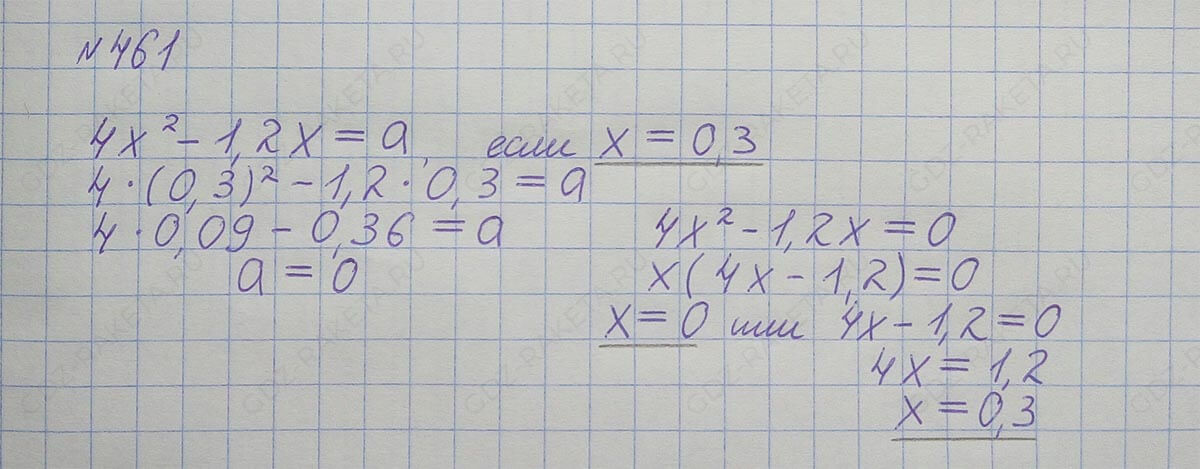 №461
4x² - 1,2x = a, если x = 0,3
4·(0,3)² - 1,2·0,3 = a
4·0,09 - 0,36 = a
a = 0
4x² - 1,2x = 0
x(4x - 1,2) = 0
x = 0 или 4x - 1,2 = 0
4x = 1,2
x = 0,3
GDZ-RAKETA.RU